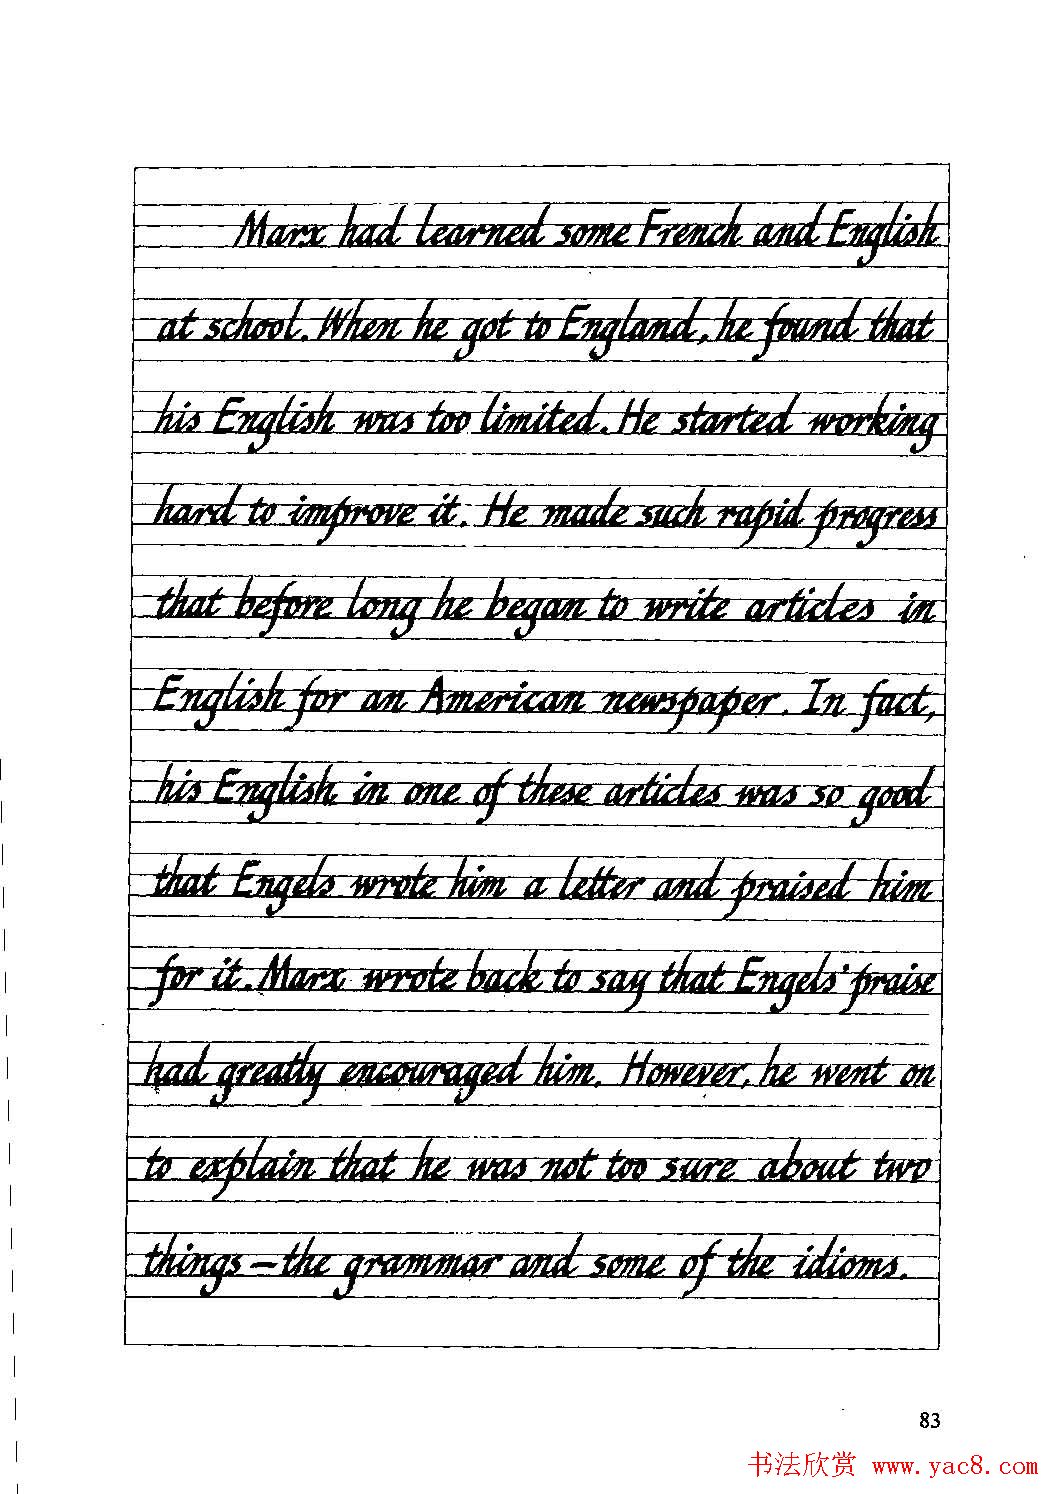 Marx had learned some French and English
at school. When he got to England, he found that
his English was too limited. He started working
hard to improve it. He made such rapid progress
that before long he began to write articles in
English for an American newspaper. In fact,
his English in one of these articles was so good
that Engels wrote him a letter and praised him
for it. Marx wrote back to say that Engels' praise
had greatly encouraged him. However, he went on
to explain that he was not too sure about two
things — the grammar and some of the idioms.
83
书法欣赏 www.yac8.com